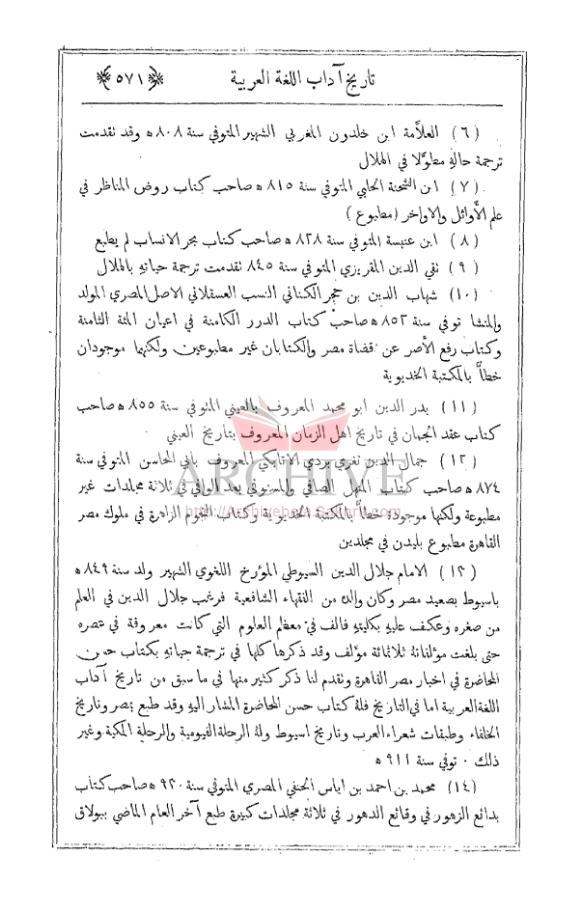 تاريخ آداب اللغة العربية ﴿٥٧١﴾
(٦) العلاَّمة ابن خلدون المغربي الشهير المتوفي سنة ٨٠٨ ه وقد تقدمت
ترجمة حاله مطولًا في الهلال
(٧) ابن الشحنة الحلبي المتوفي سنة ٨١٥ ه صاحب كتاب روض المناظر في
علم الأوائل والاواخر (مطبوع)
(٨) ابن عنبسة المتوفي سنة ٨٢٨ ه صاحب كتاب بحر الانساب لم يطبع
(٩) تقي الدين المقريزي المتوفي سنة ٨٤٥ تقدمت ترجمة حياته بالهلال
(١٠) شهاب الدين بن حجر الكناني النسب العسقلاني الاصل المصري المولد
والمنشا توفي سنة ٨٥٢ ه صاحب كتاب الدرر الكامنة في اعيان المئة الثامنة
وكتاب رفع الأصر عن قضاة مصر والكتابان غير مطبوعين ولكنهما موجودان
خطاً بالمكتبة الخديوية
(١١) بدر الدين ابو محمد المعروف بالعيني المتوفي سنة ٨٥٥ ه صاحب
كتاب عقد الجمان في تاريخ اهل الزمان المعروف بتاريخ العيني
(١٢) جمال الدين تغري بردي الاتابكي المعروف بابي المحاسن المتوفي سنة
٨٧٤ ه صاحب كتاب المنهل الصافي والمستوفي بعد الوافي في ثلاثة مجلدات غير
مطبوعة ولكنها موجودة خطاً بالمكتبة الخديوية وكتاب النجوم الزاهرة في ملوك مصر
القاهرة مطبوع بليدن في مجلدين
(١٣) الامام جلال الدين السيوطي المؤرخ اللغوي الشهير ولد سنة ٨٤٩ ه
باسيوط بصعيد مصر وكان والده من الفقهاء الشافعية فرغب جلال الدين في العلم
من صغره وعكف عليه بكليته فالف في معظم العلوم التي كانت معروفة في عصره
حتى بلغت مؤلفاته ثلاثمائة مؤلف وقد ذكرها كلها في ترجمة حياته بكتاب حسن
المحاضرة في اخبار مصر القاهرة وتقدم لنا ذكر كثير منها في ما سبق من تاريخ آداب
اللغة العربية اما في التاريخ فله كتاب حسن المحاضرة المشار اليه وقد طبع بمصر وتاريخ
الخلفاء وطبقات شعراء العرب وتاريخ اسيوط وله الرحلة الفيومية والرحلة المكية وغير
ذلك ٠ توفي سنة ٩١١ ه
(١٤) محمد بن احمد بن اياس الحنفي المصري المتوفي سنة ٩٣٠ ه صاحب كتاب
بدائع الزهور في وقائع الدهور في ثلاثة مجلدات كبيرة طبع آخر العام الماضي ببولاق
ARCHIVE